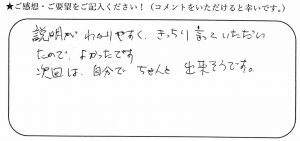 ★ご感想・ご要望をご記入ください！（コメントをいただけると幸いです。）
説明が わかりやすく、きっちり言っていただい
たので、よかったです
次回は、自分で ちゃんと 出来そうです。